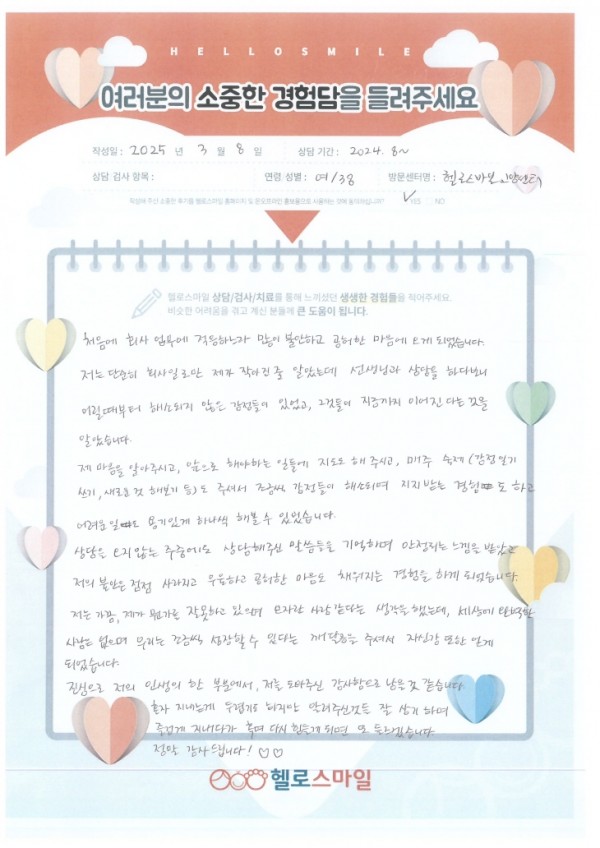 HELLOSMILE
여러분의 소중한 경험담을 들려주세요
작성일 : 2025 년 3 월 8 일 상담 기간 : 2024. 8~
상담 검사 항목 : 연령 성별 : 여/38 방문센터명 : 헬로스마일
작성해 주신 소중한 후기를 헬로스마일 홈페이지 및 온오프라인 홍보물으로 사용하는 것에 동의하십니까? ✓YES NO
헬로스마일 상담/검사/치료를 통해 느끼셨던 생생한 경험들을 적어주세요.
비슷한 어려움을 겪고 계신 분들께 큰 도움이 됩니다.
처음에 회사 업무에 적응하느라 많이 불안하고 공허한 마음에 오게 되었습니다.
저는 단순히 회사일로만 제가 작아진 줄 알았는데 선생님과 상담을 하다보니
어릴때부터 해소되지 않은 감정들이 있었고, 그것들이 지금까지 이어진다는 것을
알았습니다.
제 마음을 알아주시고, 앞으로 해야하는 일들에 지도도 해주시고, 매주 숙제(감정일기
쓰기, 새로운 것 해보기 등)도 주셔서 조금씩 감정들이 해소되며 지지받는 경험도 하고
어려운 일도 용기있게 하나씩 해볼 수 있었습니다.
상담을 오지 않는 주중에도 상담해주신 말씀들을 기억하며 안정되는 느낌을 받았고
저의 불안은 점점 사라지고 우울하고 공허한 마음도 채워지는 경험을 하게 되었습니다.
저는 가끔, 제가 뭔가를 잘못하고 있으며 모자란 사람 같다는 생각을 했는데, 세상에 완벽한
사람은 없으며 우리는 조금씩 성장할 수 있다는 깨달음을 주셔서 자신감 또한 얻게
되었습니다.
진심으로 저의 인생의 한 부분에서, 저를 도와주신 감사함으로 남을 것 같습니다.
혼자 지내는게 두렵기도 하지만 알려주신것들 잘 상기하며
즐겁게 지내다가 혹여 다시 힘들게 되면 또 들르겠습니다
정말 감사드립니다! ♡♡
헬로스마일